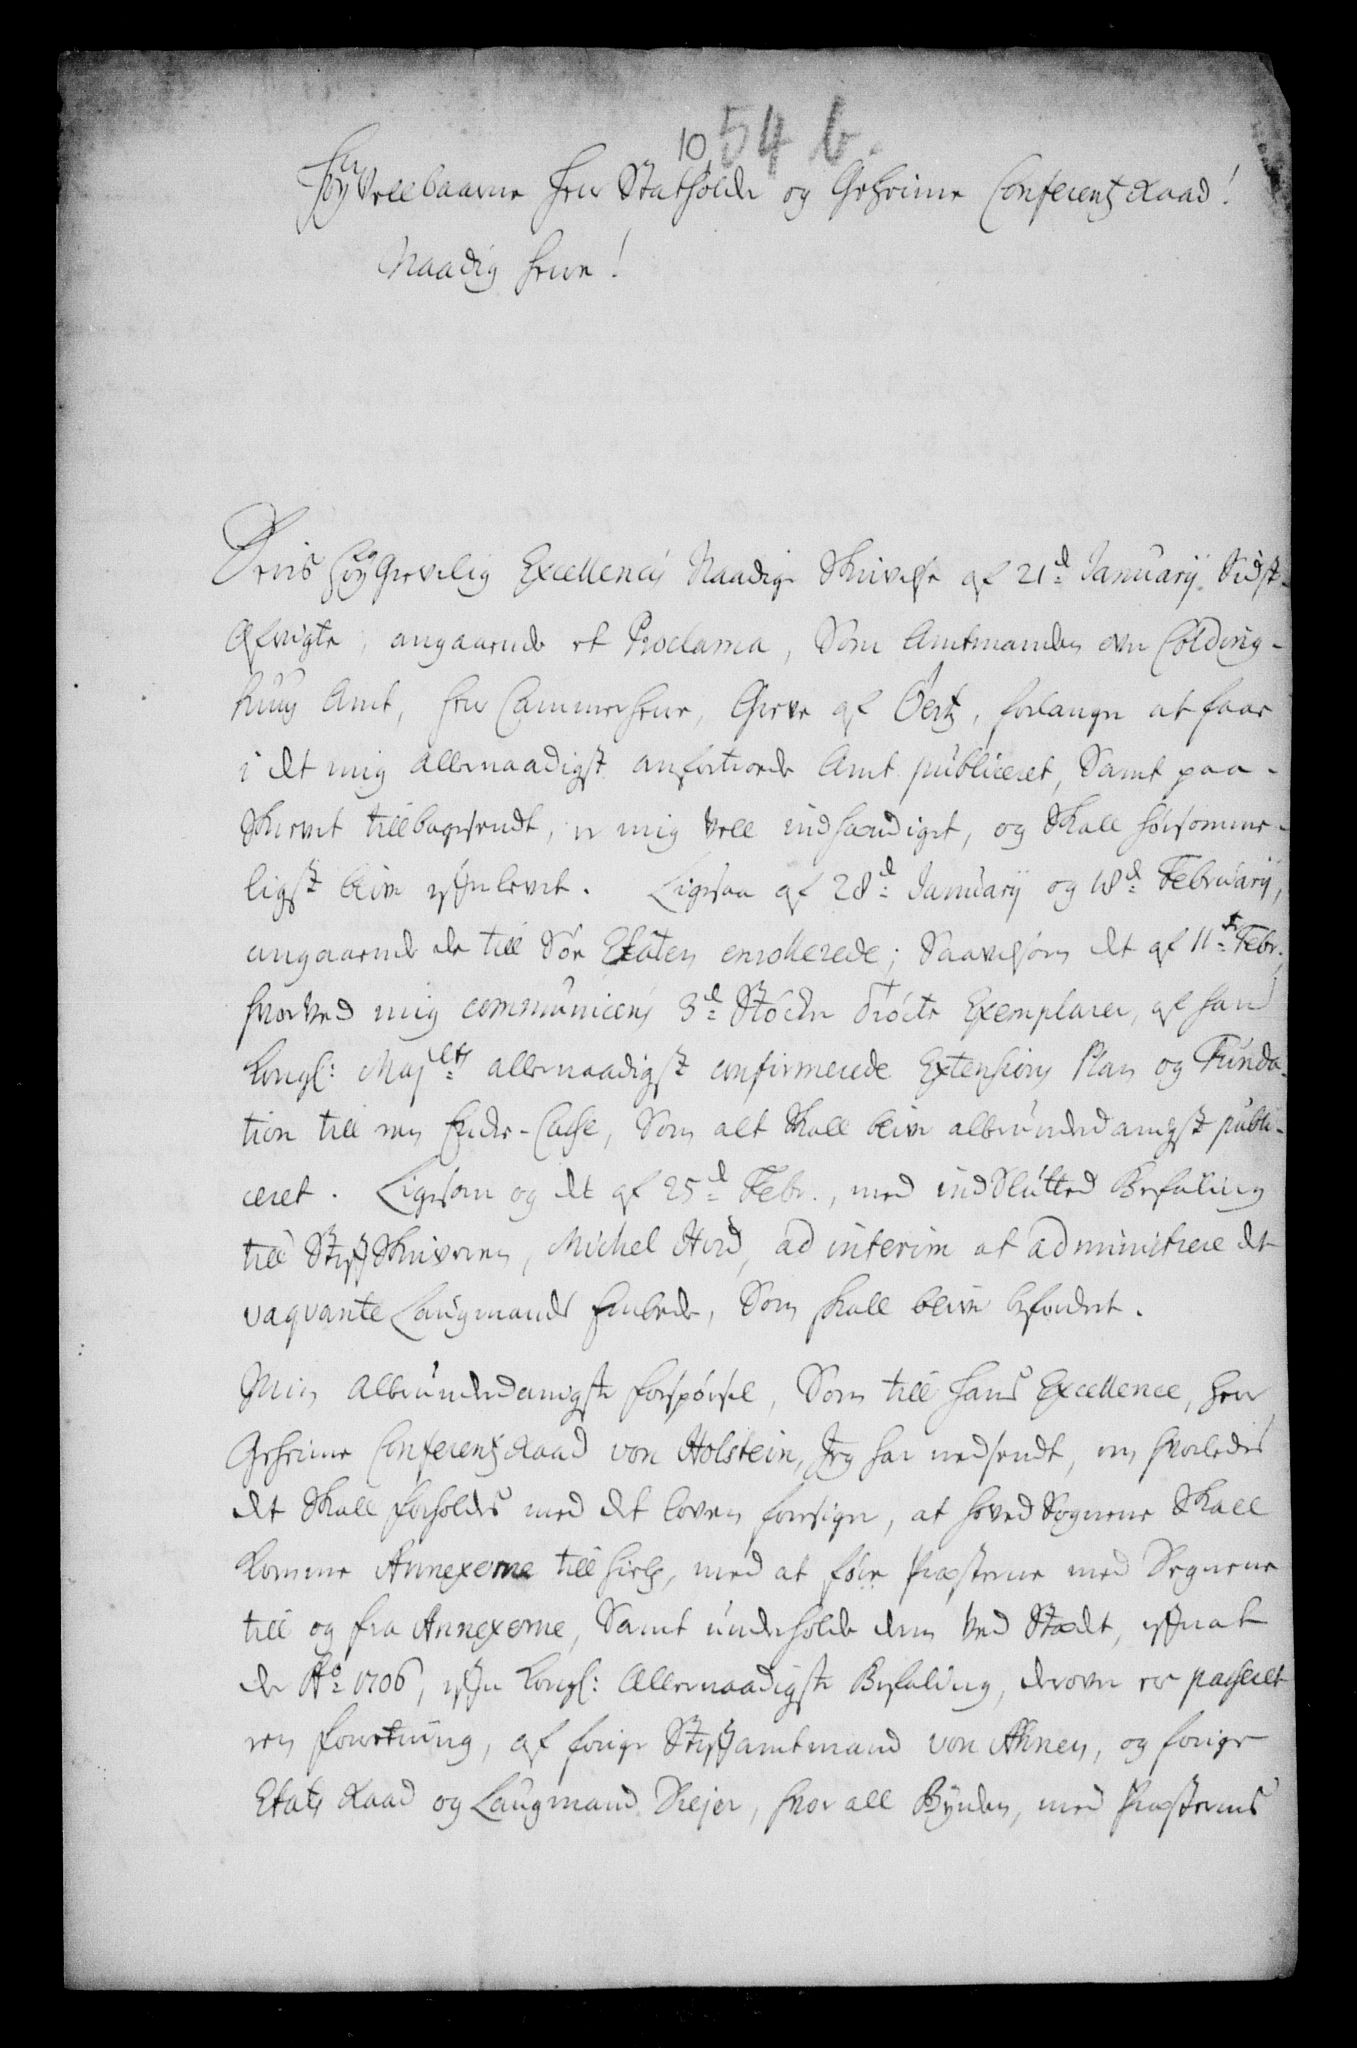 10 54 b.
HøyVelbaarne Herr Statholder og Geheime Conferentz Raad!
Naadig Herre!
Deris Høy Grevelig Excellences Naadige Skrivelse af 21d January Sidst-
Afvigte, angaaende et Proclama, Som Amtmanden over Colding-
huus Amt, Herr Cammerherre, Greve af Oertz, forlanger at faae
i det mig allernaadigst anfortroede Amt publiceret, Samt paa-
skrevet tillbagesendt, er mig vell indhændiget, og Skall hørsomme-
ligst blive efterlevet. Ligesaa af 28d January og 18d February,
angaaende de till Søe Etaten enrollerede; Saavelsom det af 11te Febr.,
hvorved mig communiceris 3d Stócker Trócte Exemplarer, af Hans
Kongl: Majts allernaadigst confirmerede Extensions Plan og Funda-
tion till een Encke-Casse, Som alt Skall blive allerunderdanigst publi-
ceret. Ligesom og det af 25d Febr., med indSlutted Befaling
till StiftSkriveren, Michel Hvid, ad interim at administrere det
vaqvante Laugmands Embede, Som skall blive befordret.
Min allerunderdanigste forspørsel, Som till Hans Excellence, Herr
Geheime Conferentz Raad von Holstein, Jeg har nedsendt, om hvorledes
det Skall forholdes med det loven foresiger, at Hoved Sognene Skall
komme Annexerne till hielp, med at føre Præsterne med Degnene
till og fra Annexerne, Samt underholde dem ved Stædet, efterat
der Ao 1706, efter Kongl: Allernaadigste Befaling, derover er passeret
een forretning, af forige Stiftamtmand von Ahnen, og forige
Etats Raad og Laugmand Dreyer, hvor all Bønder, med Præsternes